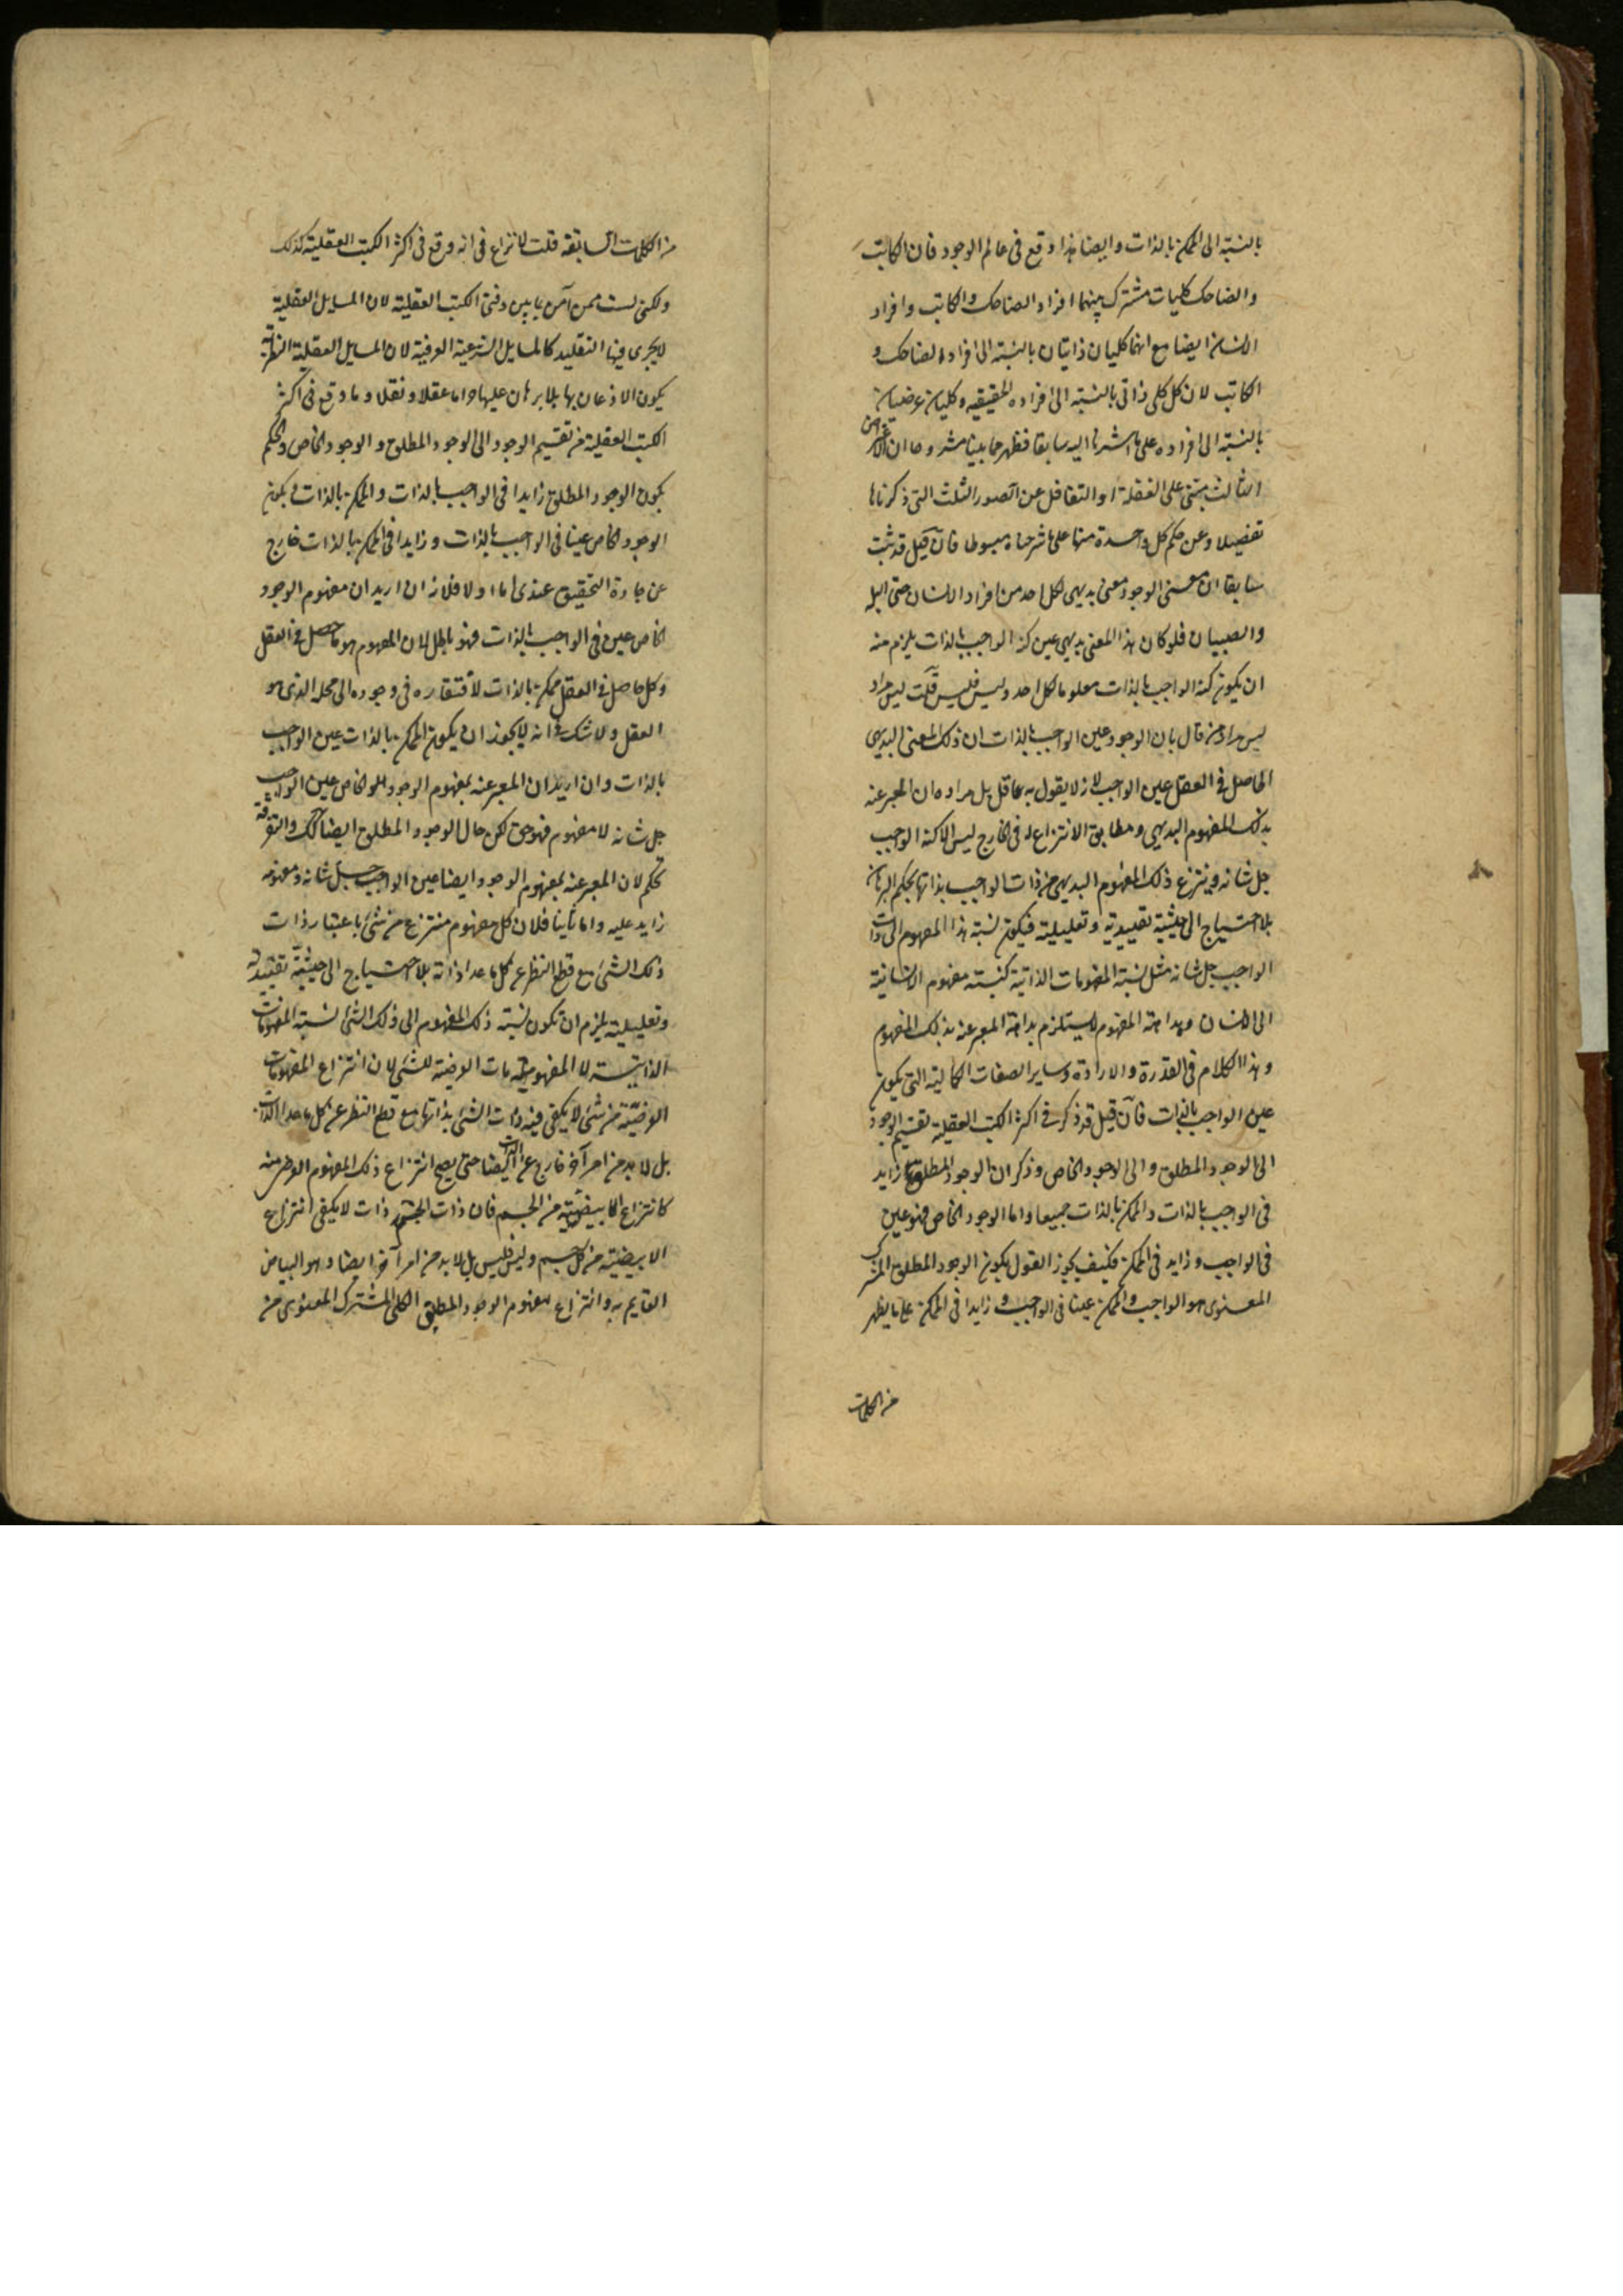 بالنسبة الى الممكن بالذات وايضا هذا وقع فى عالم الوجود فان الكاتب
والضاحك كليات مشترك بينهما افراد الضاحك والكاتب وافراد
الانسان ايضا مع انهما كليان ذاتيان بالنسبة الى افراد الضاحك و
الكاتب لان كل كلى ذاتى بالنسبة الى افراده الحقيقيه وكليان عرضيان
بالنسبة الى افراده على ما اشرنا اليه سابقا فظهر مما بينا مشروحا ان الاعتراض
الثالث مبتنى على الغفلة او التغافل عن الصور الثلث التى ذكرناها
تفصيلا وعن حكم كل واحدة منها على ما شرحناه مبسوطا فان قيل قد ثبت
سابقا ان معنى الوجود معنى بديهى لكل احد من افراد الانسان حتى البله
والصبيان فلو كان هذا المعنى بديهى عين كنه الواجب بالذات يلزم منه
ان يكون كنه الواجب بالذات معلوما لكل احد وليس فليس قلت ليس مراد
ليس مراد من قال بان الوجود عين الواجب بالذات ان ذلك المعنى البديهى
الحاصل فى العقل عين الواجب لانه لا يقول به عاقل بل مراده ان المعبر عنه
بذلك المفهوم البديهى ومطابق الانتزاع له فى الخارج ليس الا كنه الواجب
جل شانه وينتزع ذلك المفهوم البديهى من ذات الواجب بذاتها بحكم البرهان
بلا احتياج الى حيثية تقييدية وتعليلية فيكون نسبة هذا المفهوم الى ذات
الواجب جل شانه مثل نسبة المفهومات الذاتية كنسبته مفهوم الانسانية
الى الانسان وبداهة المفهوم لا يستلزم بداهة المعبر عنه بذلك المفهوم
وهذا الكلام فى القدرة والارادة وساير الصفات الكمالية التى يكون
عين الواجب بالذات فان قيل قد ذكر فى اكثر الكتب العقلية تقسيم الوجود
الى الوجود المطلق والى الوجود الخاص وذكر ان الوجود المطلق زايد
فى الواجب بالذات والممكن بالذات جميعا واما الوجود الخاص فهو عين
فى الواجب وزايد فى الممكن فكيف يجوز القول بكون الوجود المطلق المشترك
المعنوى هو الواجب والممكن عينا فى الواجب و زايدا فى الممكن على ما يظهر
من الكلمات
من الكلمات السابقة قلت لا نزاع فى انه وقع فى اكثر الكتب العقلية كذلك
ولكنى لست ممن آمن بما بين دفتى الكتب العقلية لان المسايل العقلية
لا يجرى فيها التقليد كالمسايل الشرعية الفرعية لان المسايل العقلية النظرية
يكون الاذعان بها بلا برهان عليها حراما عقلا ونقلا وما وقع فى اكثر
الكتب العقلية من تقسيم الوجود الى الوجود المطلق والوجود الخاص والحكم
بكون الوجود المطلق زايدا فى الواجب بالذات والممكن بالذات وبكون
الوجود الخاص عينا فى الواجب بالذات وزايدا فى الممكن بالذات خارج
عن جادة التحقيق عندى اما اولا فلانه ان اريد ان مفهوم الوجود
الخاص عين فى الواجب بالذات فهو باطل لان المفهوم هو ما حصل فى العقل
وكل حاصل فى العقل ممكن بالذات لافتقاره فى وجوده الى محله الذى هو
العقل ولا شك فى انه لا يجوز ان يكون الممكن بالذات عين الواجب
بالذات وان اريد ان المعبر عنه بمفهوم الوجود الخاص عين الواجب
جل شانه لا مفهومه فهو حق لكن حال الوجود المطلق ايضا كذلك والتفرقة
تحكم لان المعبر عنه بمفهوم الوجود ايضا عين الواجب جل شانه ومفهومه
زايد عليه واما ثانيا فلان كل مفهوم منتزع من شئ باعتبار ذات
ذلك الشئ مع قطع النظر عن كل ما عدا ذاته بلا احتياج الى حيثية تقييدية
وتعليلية يلزم ان تكون نسبة ذلك المفهوم الى ذلك الشئ نسبة المفهومات
الذاتية لا المفهومات العرضية للشئ لان انتزاع المفهومات
العرضية من شئ لا يكفى فيه ذات الشئ بذاتها مع قطع النظر عن كل ما عدا الذات
بل لا بد من امر آخر خارج عن الذات ايضا حتى يصح انتزاع ذلك المفهوم العرضى منه
كانتزاع الابيضية من الجسم فان ذات الجسم ذات لا يكفى انتزاع
الابيضية من كل جسم وليس فليس بل لا بد من امر آخر ايضا وهو البياض
القايم به وانتزاع مفهوم الوجود المطلق الكلى المشترك المعنوى من